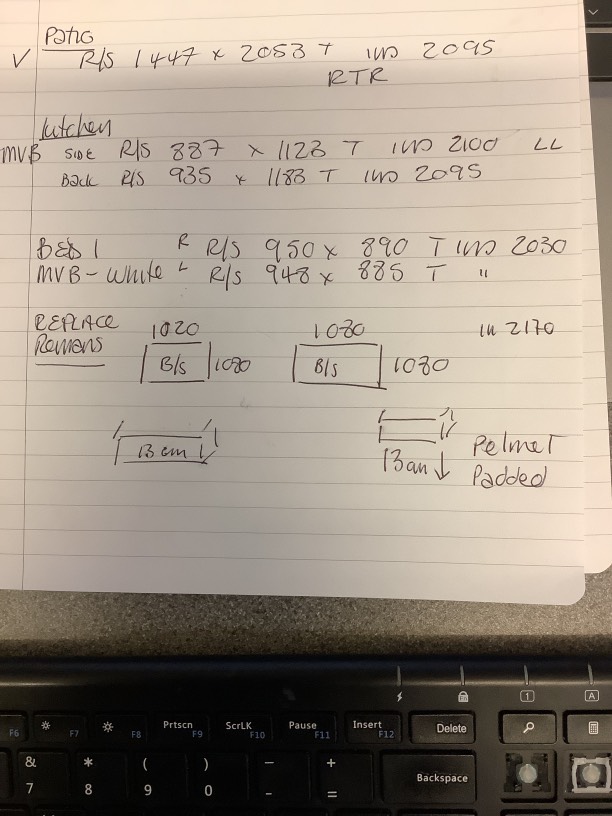 Patio
V R/S 1447 x 2053 T IWD 2095
RTR
kitchen
MVB SIDE R/S 887 x 1123 T IWD 2100 LL
Back R/S 935 x 1183 T IWD 2095
BED 1 R R/S 950 x 890 T IWD 2030
MVB - White L R/S 948 x 885 T "
REPLACE
Romans
1020
B/s 1080
1080
B/s 1080
in 2170
13 cm ↓
13 cm ↓
Pelmet
Padded
F6
F7
F8
Prtscn F9
ScrLK F10
Pause F11
Insert F12
Delete
1
A
& 7
* 8
( 9
) 0
_ -
+ =
Backspace